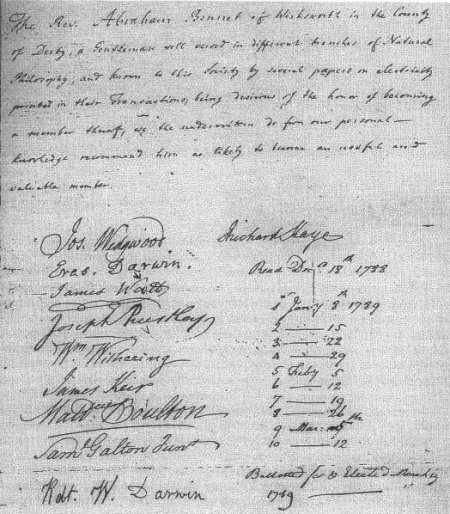 The Rev. Abraham Bennet of Wirksworth in the County
of Derby, a Gentleman well versed in different branches of Natural
Philosophy, and known to this Society by several papers on electricity
printed in their Transactions, being desirous of the honor of becoming
a member thereof, we the underwritten do from our personal
knowledge recommend him as likely to become an useful and
valuable member.
Jos. Wedgwood
Richard Kaye
Eras. Darwin.
Read Decr. 18th 1788
James Watt
1 Jany 8th 1789
Joseph Priestley
2 — 15
3 — 22
Wm Withering
4 — 29
5 Feby 5
James Keir
6 — 12
7 — 19
Matt. Boulton
8 — 26
9 Mar. 5th
Saml Galton Junr
10 — 12
Balloted for & Elected
Robt. W. Darwin
1789